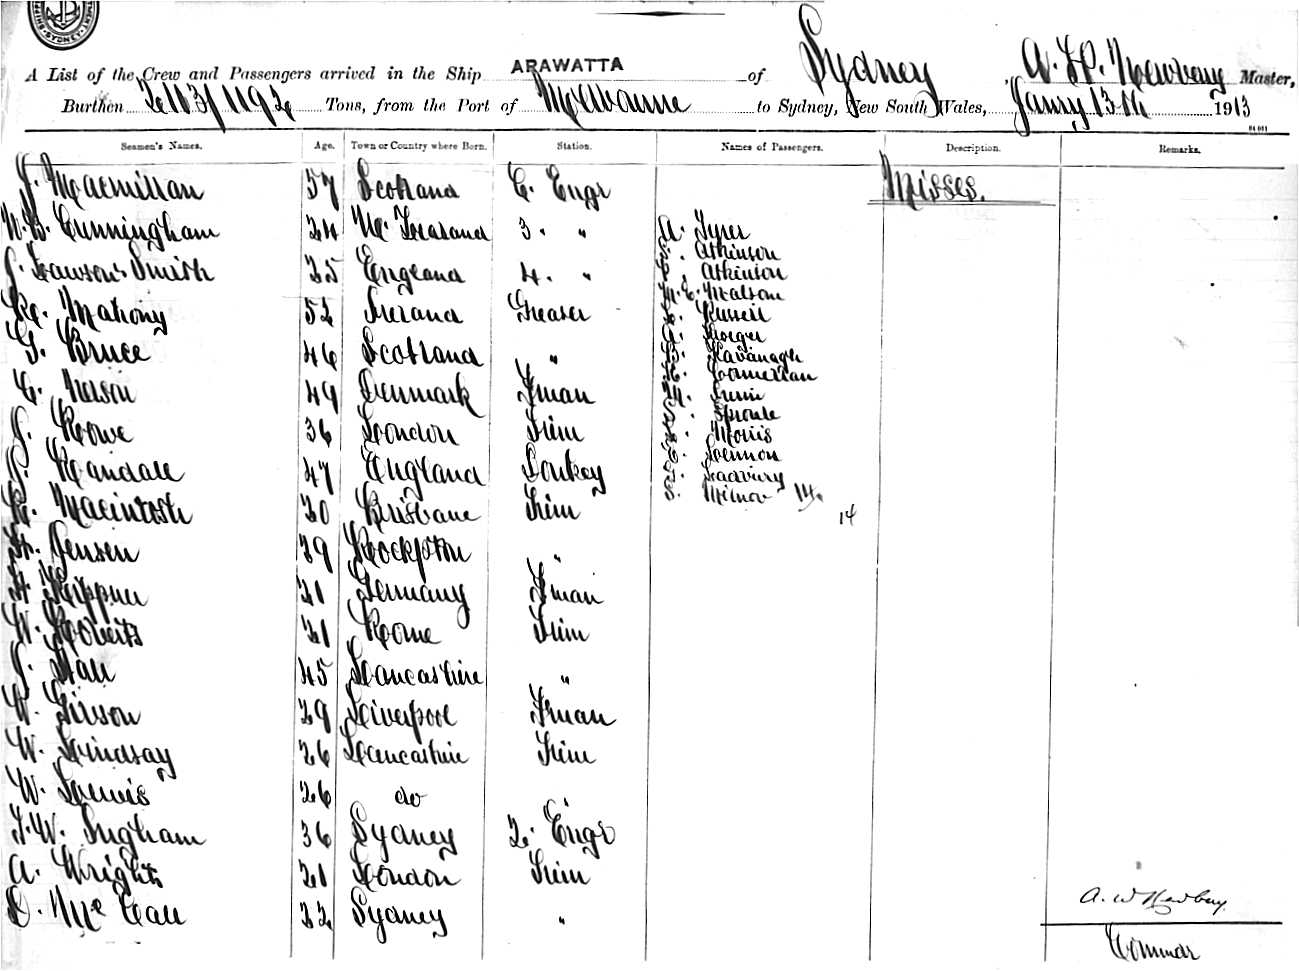 SYDNEY
A List of the Crew and Passengers arrived in the Ship ARAWATTA of Sydney, Master,
Burthen Tons, from the Port of Melbourne to Sydney, New South Wales, Jany 13th 1913
Seamen's Names. Age. Town or Country where Born. Station. Names of Passengers. Description. Remarks.
J. Macmillan 57 Scotland C. Engr Misses.
W. B. Cunningham 24 N. Zealand 3. " A. Tyrer
Atkinson
J. Lawson Smith 25 England 4. " Atkinson
Watson
Mahony 52 Ireland Greaser Russell
Kroeger
G. Bruce 46 Scotland " Kavanagh
Connellan
C. Nelson 49 Denmark Fman
Sproule
J. Rowe 36 London Trim Morris
Lennon
J. Randall 47 England Donkey
Milnor 14.
R. Macintosh 20 Brisbane Trim 14
H. Jensen 29 Rockpton "
H. Kippner 21 Germany Fman
W. Roberts 21 Rome Trim
J. Hall 45 Lancashire "
W. Gibson 29 Liverpool Fman
W. Lindsay 26 Lancashire Trim
W. Lewis 26 do
T. W. Ingham 36 Sydney 2. Engr
A. Wright 21 London Trim
D. McCall 22 Sydney "
Commdr